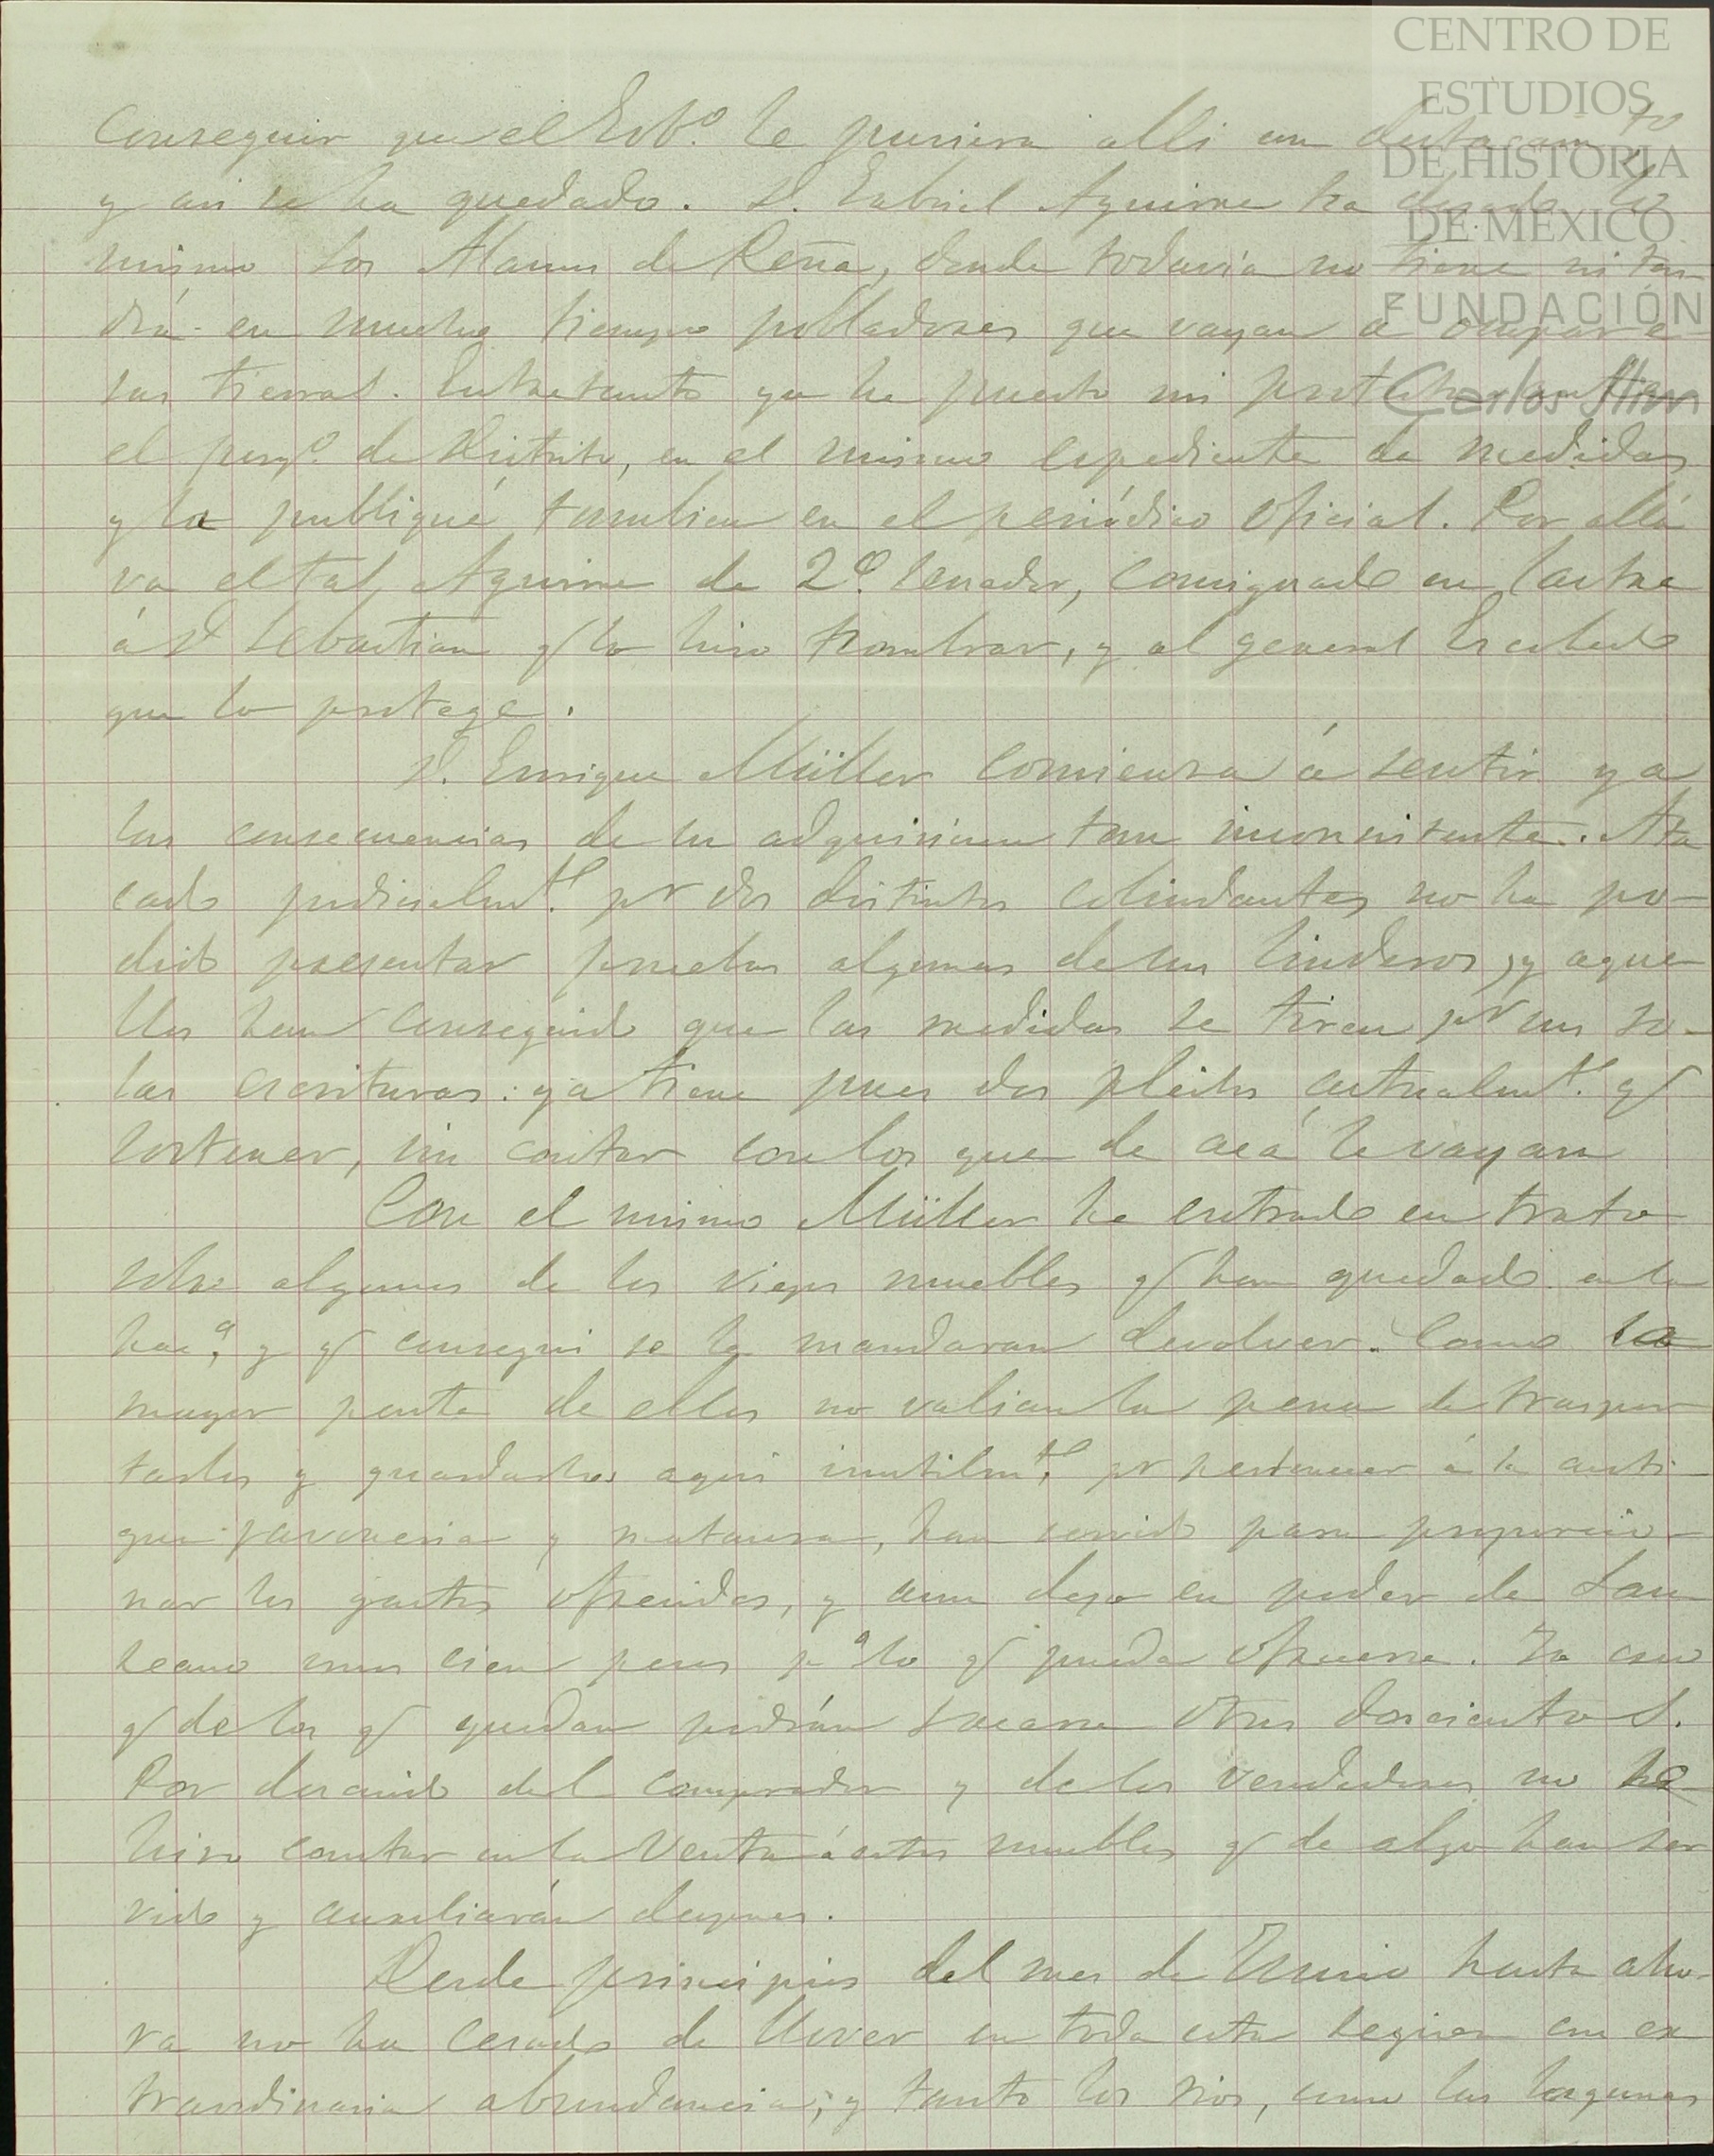 CENTRO DE
ESTUDIOS
DE HISTORIA
DE MÉXICO
FUNDACIÓN
Carlos Slim
conseguir que el Gob.º le pusiera alli un destacam.to
y asi se ha quedado. D. Gabriel Aguirre ha dejado lo
mismo los Alamos de Peña, donde todavia no tiene ni ten-
drá en mucho tiempo pobladores que vayan á ocupar e-
sas tierras. Entretanto ya he puesto mi protesta ante
el juzg.º de Distrito, en el mismo espediente de medidas
y la publiqué tambien en el periódico oficial. Por allá
va el tal Aguirre de 2.º Senador, consignado en
á D Sebastian q lo hizo nombrar, y al general Escobedo
que lo protege.
D. Enrique Müller comienza á sentir ya
las consecuencias de su adquisicion tan inconsistente. Ata
cado judicialm.te pr dos distintos colindantes no ha po-
dido presentar pruebas algunas de sus linderos, y aque-
llos han conseguido que las medidas se tiren pr sus so-
las escrituras: ya tiene pues dos pleitos actualm.te q
sostener, sin contar con los que de acá le vayan
Con el mismo Müller he entrado en trato
sobre algunos de los viejos muebles q han quedado en la
hac.a, y q consegui se la mandaran devolver. Como la
mayor parte de ellos no valian la pena de traspor
tarlos y guardarlos aqui inutilm.te, pr pertenecer á la anti-
gua jaboneria y matanza, han servido para proporcio-
nar los gastos ofrecidos, y aun dejo en poder de Lau
reano unos cien pesos p.a lo q pueda ofrecerse. Yo creo
q de los q quedan podrán sacarse otros doscientos.
Por descuido del comprador y de los vendedores no se
hizo constar en la venta á estos muebles q de algo han ser
vido y auxiliarán despues.
Desde principios del mes de Junio hasta aho-
ra no ha cesado de llover en toda esta region con ex
traordinaria abundancia; y tanto los rios, como las lagunas